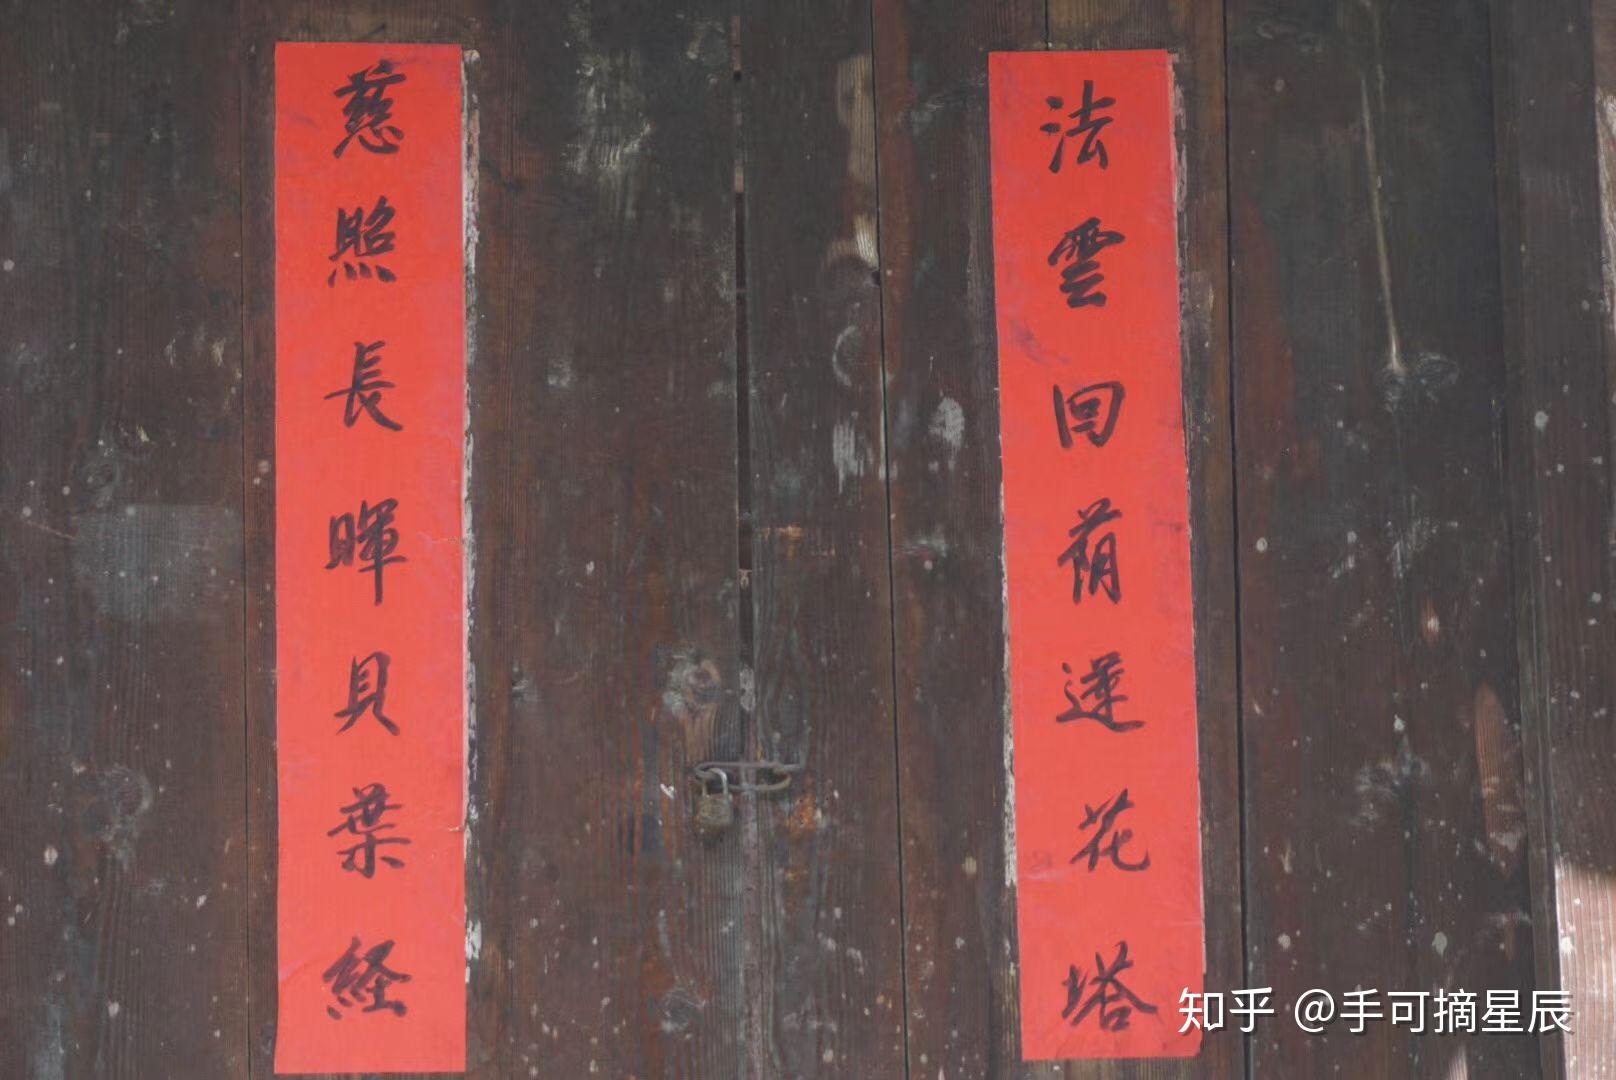 法雲回荫蓮花塔
慈照長暉貝葉経
知乎 @手可摘星辰